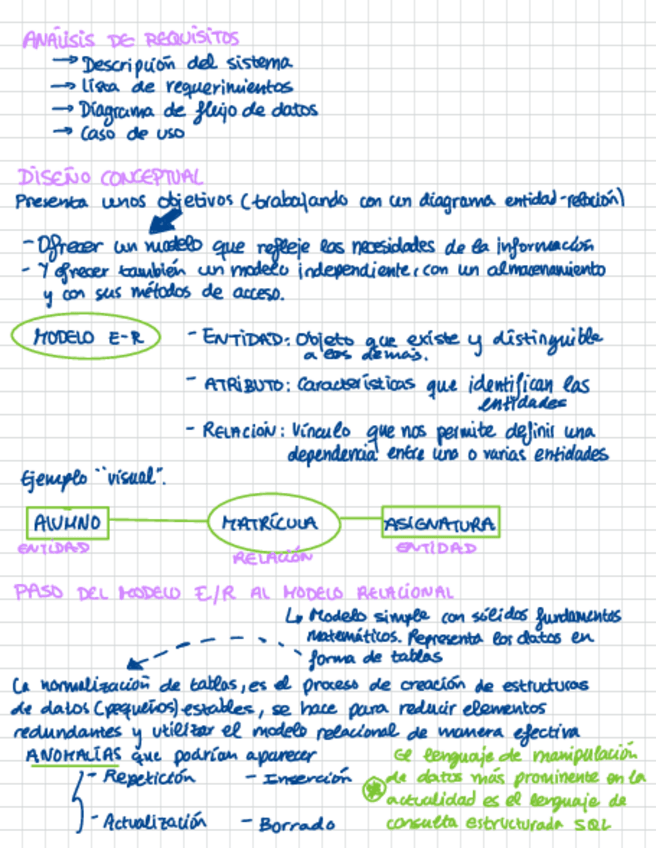 ANÁLISIS DE REQUISITOS
→ Descripción del sistema
→ lista de requerimientos
→ Diagrama de flujo de datos
→ Caso de uso
DISEÑO CONCEPTUAL
Presenta unos objetivos (trabajando con un diagrama entidad-relación)
- Ofrecer un modelo que refleje las necesidades de la información
- Y ofrecer también un modelo independiente, con un almacenamiento
y con sus métodos de acceso.
MODELO E-R
- ENTIDAD: Objeto que existe y distinguible
a los demás.
- ATRIBUTO: Características que identifican las
entidades
- RELACIÓN: Vínculo que nos permite definir una
dependencia entre una o varias entidades
Ejemplo "visual".
ALUMNO MATRÍCULA ASIGNATURA
ENTIDAD RELACIÓN ENTIDAD
PASO DEL MODELO E/R AL MODELO RELACIONAL
↳ Modelo simple con sólidos fundamentos
matemáticos. Representa los datos en
forma de tablas
La normalización de tablas, es el proceso de creación de estructuras
de datos (pequeños) estables, se hace para reducir elementos
redundantes y utilizar el modelo relacional de manera efectiva
ANOMALÍAS que podrían aparecer
- Repetición - Inserción
- Actualización - Borrado
El lenguaje de manipulación
de datos más prominente en la
actualidad es el lenguaje de
consulta estructurada SQL